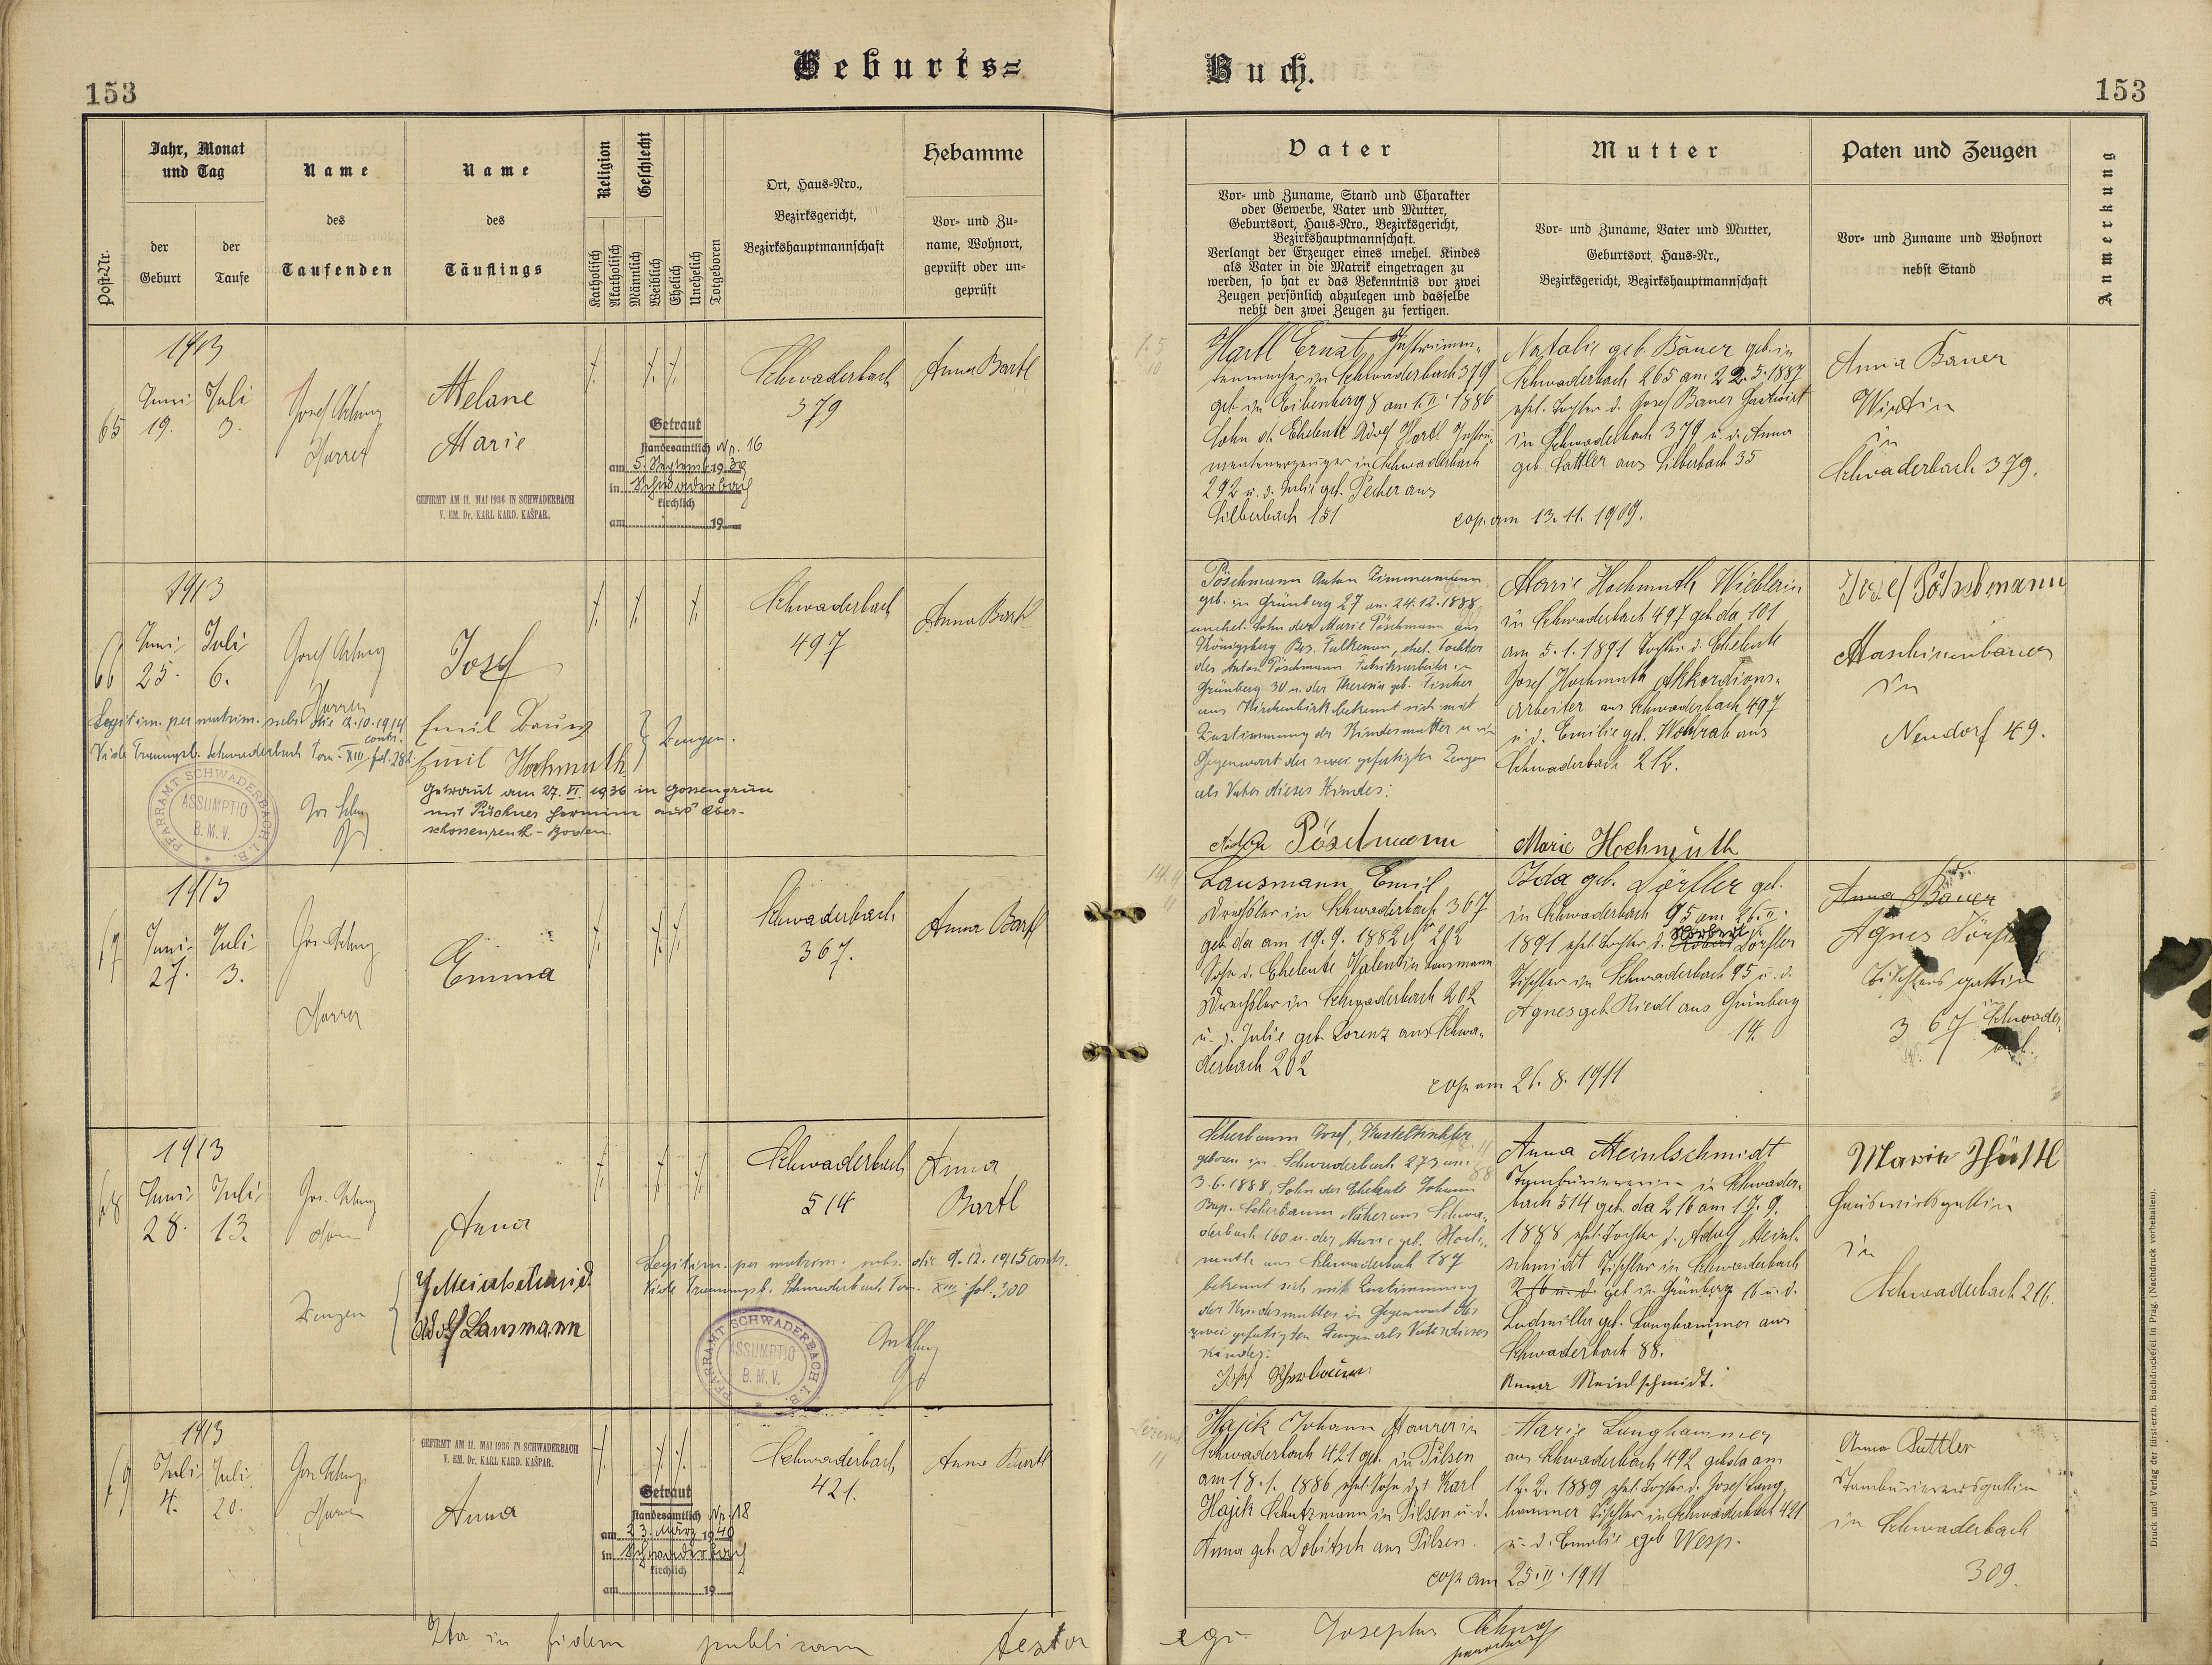 Geburts=
Buch.
153
153
Post-Nr.
Jahr, Monat
und Tag
der
Geburt
der
Taufe
Name
des
Taufenden
Name
des
Täuflings
Religion
Katholisch
Akatholisch
Geschlecht
Männlich
Weiblich
Ehelich
Unehelich
Totgeboren
Ort, Haus-Nro.,
Bezirksgericht,
Bezirkshauptmannschaft
Hebamme
Vor- und Zu-
name, Wohnort,
geprüft oder un-
geprüft
Vater
Vor- und Zuname, Stand und Charakter
oder Gewerbe, Vater und Mutter,
Geburtsort, Haus-Nro., Bezirksgericht,
Bezirkshauptmannschaft.
Verlangt der Erzeuger eines unehel. Kindes
als Vater in die Matrik eingetragen zu
werden, so hat er das Bekenntnis vor zwei
Zeugen persönlich abzulegen und dasselbe
nebst den zwei Zeugen zu fertigen.
Mutter
Vor- und Zuname, Vater und Mutter,
Geburtsort, Haus-Nr.,
Bezirksgericht, Bezirkshauptmannschaft
Paten und Zeugen
Vor- und Zuname und Wohnort
nebst Stand
Anmerkung
65
1913
Juni
19.
Juli
3.
Josef
Pfarrer
Melane
Marie
GEFIRMT AM 11. MAI 1936 IN SCHWADERBACH
V. EM. Dr. KARL KARD. KAŠPAR.
Getraut
standesamtlich Nr. 16
am 5. Septemb. 1939
in Schwaderbach
kirchlich
am 19
Schwaderbach
379
Anna Bartl
Hartl Ernst, Instrumen-
tenmacher in Schwaderbach 379
geb. in Eibenberg 8 am 1.II. 1886
Sohn d. Eheleute Adolf Hartl Instru-
mentenerzeuger in Schwaderbach
292 u. d. Julie geb. Pecher aus
Silberbach 151
Natalie geb. Bauer geb. in
Schwaderbach 265 am 22.5.1887
ehel. Tochter d. Josef Bauer Gastwirt
in Schwaderbach 379 u. d. Anna
geb. Sattler aus Silberbach 35
cop. am 13.11.1909.
Anna Bauer
Wirtin
in
Schwaderbach 379.
66
1913
Juni
25.
Juli
6.
Josef
Pfarrer
Josef
Legitim. per matrim. subs. die 12.10.1914
contr.
Vide Trauungsb. Schwaderbach Tom. XIII fol. 282
Emil
Emil Hochmuth
Zeugen.
Getraut am 27. VI. 1936 in Gossengrün
mit Püchner Hermine aus Ober-
schossenreuth - Boden.
PFARRAMT SCHWADERBACH I. B.
ASSUMPTIO
B. M. V.
Schwaderbach
497
Anna Bartl
Pöschmann Anton Zimmermann
geb. in Grünberg 27 am 24.12.1888
unehel. Sohn der Marie Pöschmann aus
Königsberg Bez. Falkenau, ehel. Tochter
des Anton Pöschmann Fabriksarbeiter in
Grünberg 30 u. der Theresia geb. Fischer
aus Kirchenbirk bekennt sich mit
Zustimmung der Kindesmutter u. in
Gegenwart der zwei gefertigten Zeugen
als Vater dieses Kindes:
Anton Pöschmann
Marie Hochmuth
in Schwaderbach 497 geb. da 101
am 5.1.1891 Tochter d. Eheleute
Josef Hochmuth Akkordions-
arbeiter aus Schwaderbach 497
u. d. Emilie geb. Wohlrab aus
Schwaderbach 212.
Marie Hochmuth
Josef Pöschmann
Maschinenbauer
in
Neudorf 49.
67
1913
Juni
27.
Juli
3.
Jos.
Pfarrer
Emma
Schwaderbach
367.
Anna Bartl
Lausmann Emil
Drechsler in Schwaderbach 367
geb. da am 19.9.1882 Nr 202
Sohn d. Eheleute Valentin Lausmann
Drechsler in Schwaderbach 202
u. d. Julie geb. Lorenz aus Schwa-
derbach 202
Ida geb. Dörfler geb.
in Schwaderbach 95 am 26.II.
1891 ehel. Tochter d. Norbert Dörfler
Tischler in Schwaderbach 95 u. d.
Agnes geb. Riedl aus Grünberg
14.
cop. am 26.8.1911
Anna Bauer
Agnes Dörfler
Tischlersgattin
in
367 Schwader-
bach.
68
1913
Juni
28.
Juli
13.
Jos.
Pfarrer
Anna
Zeugen
Meinlschmid
Adolf Lausmann
Legitim. per matrim. subs. die 9.12.1915 contr.
Vide Trauungsb. Schwaderbach Tom. XIII fol. 300
PFARRAMT SCHWADERBACH I. B.
ASSUMPTIO
B. M. V.
Schwaderbach
514
Anna
Bartl
Scherbaum Josef,
geboren in Schwaderbach 273 am
3.6.1888, Sohn der Eheleute Johann
Bap. Scherbaum Näher aus Schwa-
derbach 160 u. der Marie geb. Hoch-
muth aus Schwaderbach 187
bekennt sich mit Zustimmung
der Kindesmutter in Gegenwart der
zwei gefertigten Zeugen als Vater dieses
Kindes:
Josef Scherbaum
Anna Meinlschmidt
Tambouriererin in Schwader-
bach 514 geb. da 216 am 17.9.
1888 ehel. Tochter d. Adolf Meinl-
schmidt Tischler in Schwaderbach
216 u. d. geb. in Grünberg 16 u. d.
Ludmilla geb. Langhammer aus
Schwaderbach 88.
Anna Meinlschmidt.
Marie Hüttl
Hauswirtsgattin
in
Schwaderbach 216.
69
1913
Juli
4.
Juli
20.
Jos.
Pfarrer
GEFIRMT AM 11. MAI 1936 IN SCHWADERBACH
V. EM. Dr. KARL KARD. KAŠPAR.
Anna
Getraut
standesamtlich Nr. 18
am 23. März 1940
in Schwaderbach
kirchlich
am 19
Schwaderbach
421.
Anna Bartl
Hajik Johann Maurer in
Schwaderbach 421 geb. in Pilsen
am 18.1.1886 ehel. Sohn des Karl
Hajik Schutzmann in Pilsen u. d.
Anna geb. Dobitsch aus Pilsen.
Marie Langhammer
aus Schwaderbach 492 geb. da am
12.2.1889 ehel. Tochter d. Josef Lang-
hammer Tischler in Schwaderbach 421
u. d. Emilie geb Wesp.
cop. am 25.II.1911
Anna Suttler
Tambourierersgattin
in Schwaderbach
309.
Ita in fidem publicam testor
ego Josephus
parochus
Druck und Verlag der fürst-erzb. Buchdruckerei in Prag. (Nachdruck vorbehalten).